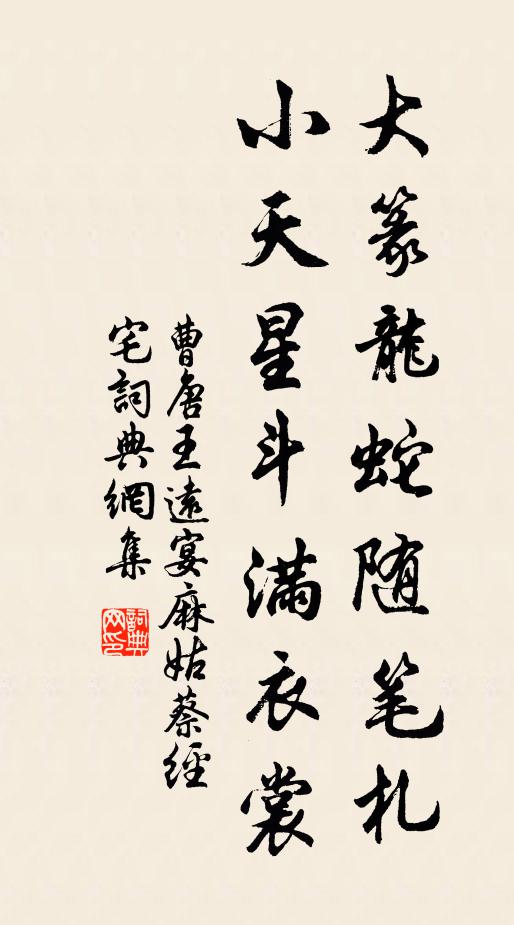 大篆龍蛇随笔札
小天星斗滿衣裳
曹唐王遠宴麻姑蔡經
宅詞典網集
詞典网印